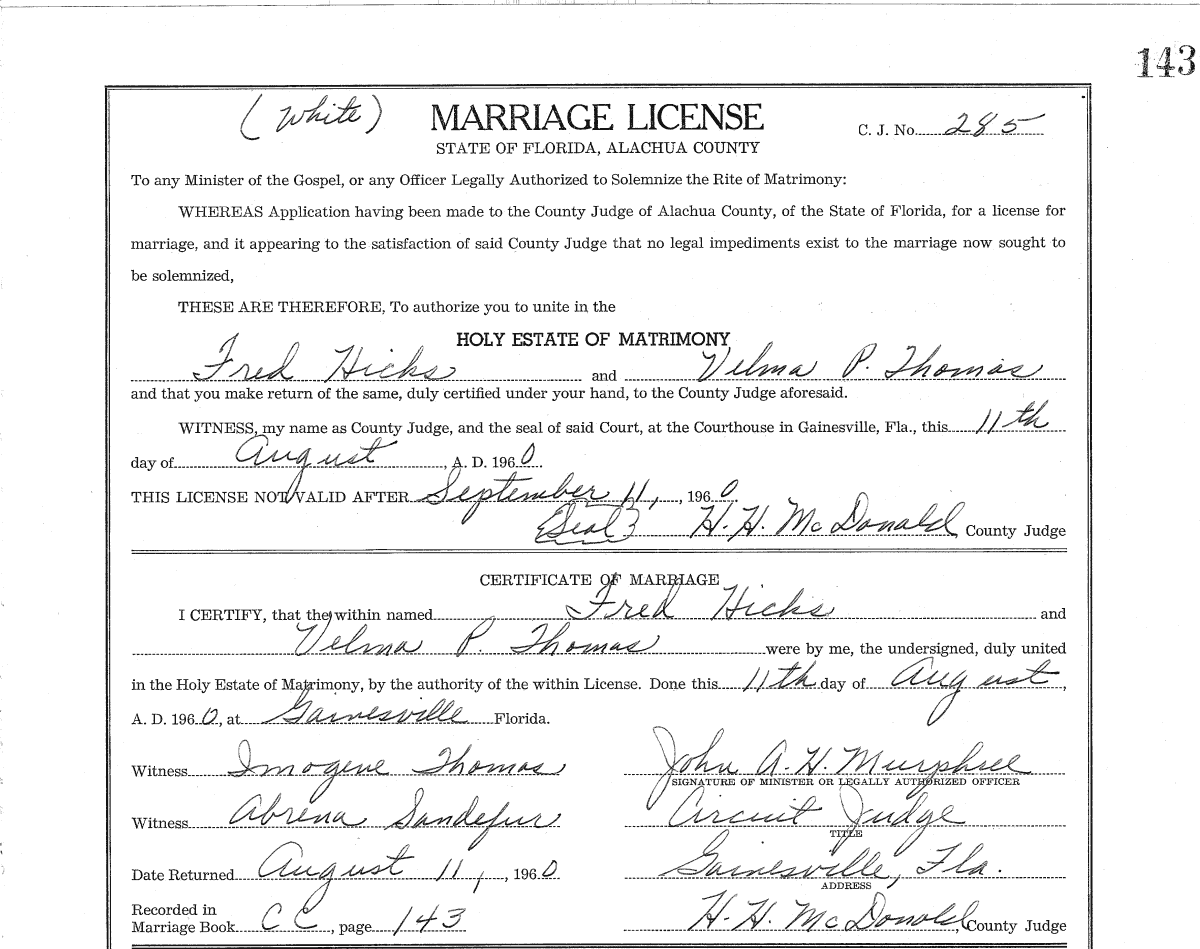 143
(White) MARRIAGE LICENSE C. J. No. 285
STATE OF FLORIDA, ALACHUA COUNTY
To any Minister of the Gospel, or any Officer Legally Authorized to Solemnize the Rite of Matrimony:
WHEREAS Application having been made to the County Judge of Alachua County, of the State of Florida, for a license for
marriage, and it appearing to the satisfaction of said County Judge that no legal impediments exist to the marriage now sought to
be solemnized,
THESE ARE THEREFORE, To authorize you to unite in the
HOLY ESTATE OF MATRIMONY
Fred Hicks and Velma P. Thomas
and that you make return of the same, duly certified under your hand, to the County Judge aforesaid.
WITNESS, my name as County Judge, and the seal of said Court, at the Courthouse in Gainesville, Fla., this 11th
day of August, A. D. 1960.
THIS LICENSE NOT VALID AFTER September 11, , 1960.
{Seal} H. H. McDonald County Judge
CERTIFICATE OF MARRIAGE
I CERTIFY, that the within named Fred Hicks and
Velma P. Thomas were by me, the undersigned, duly united
in the Holy Estate of Matrimony, by the authority of the within License. Done this 11th day of August,
A. D. 1960, at Gainesville Florida.
Witness Imogene Thomas John A. H. Murphree
SIGNATURE OF MINISTER OR LEGALLY AUTHORIZED OFFICER
Witness Abrena Sandefur Circuit Judge
TITLE
Date Returned August 11, , 1960 Gainesville, Fla.
ADDRESS
Recorded in
Marriage Book CC, page 143 H. H. McDonald, County Judge